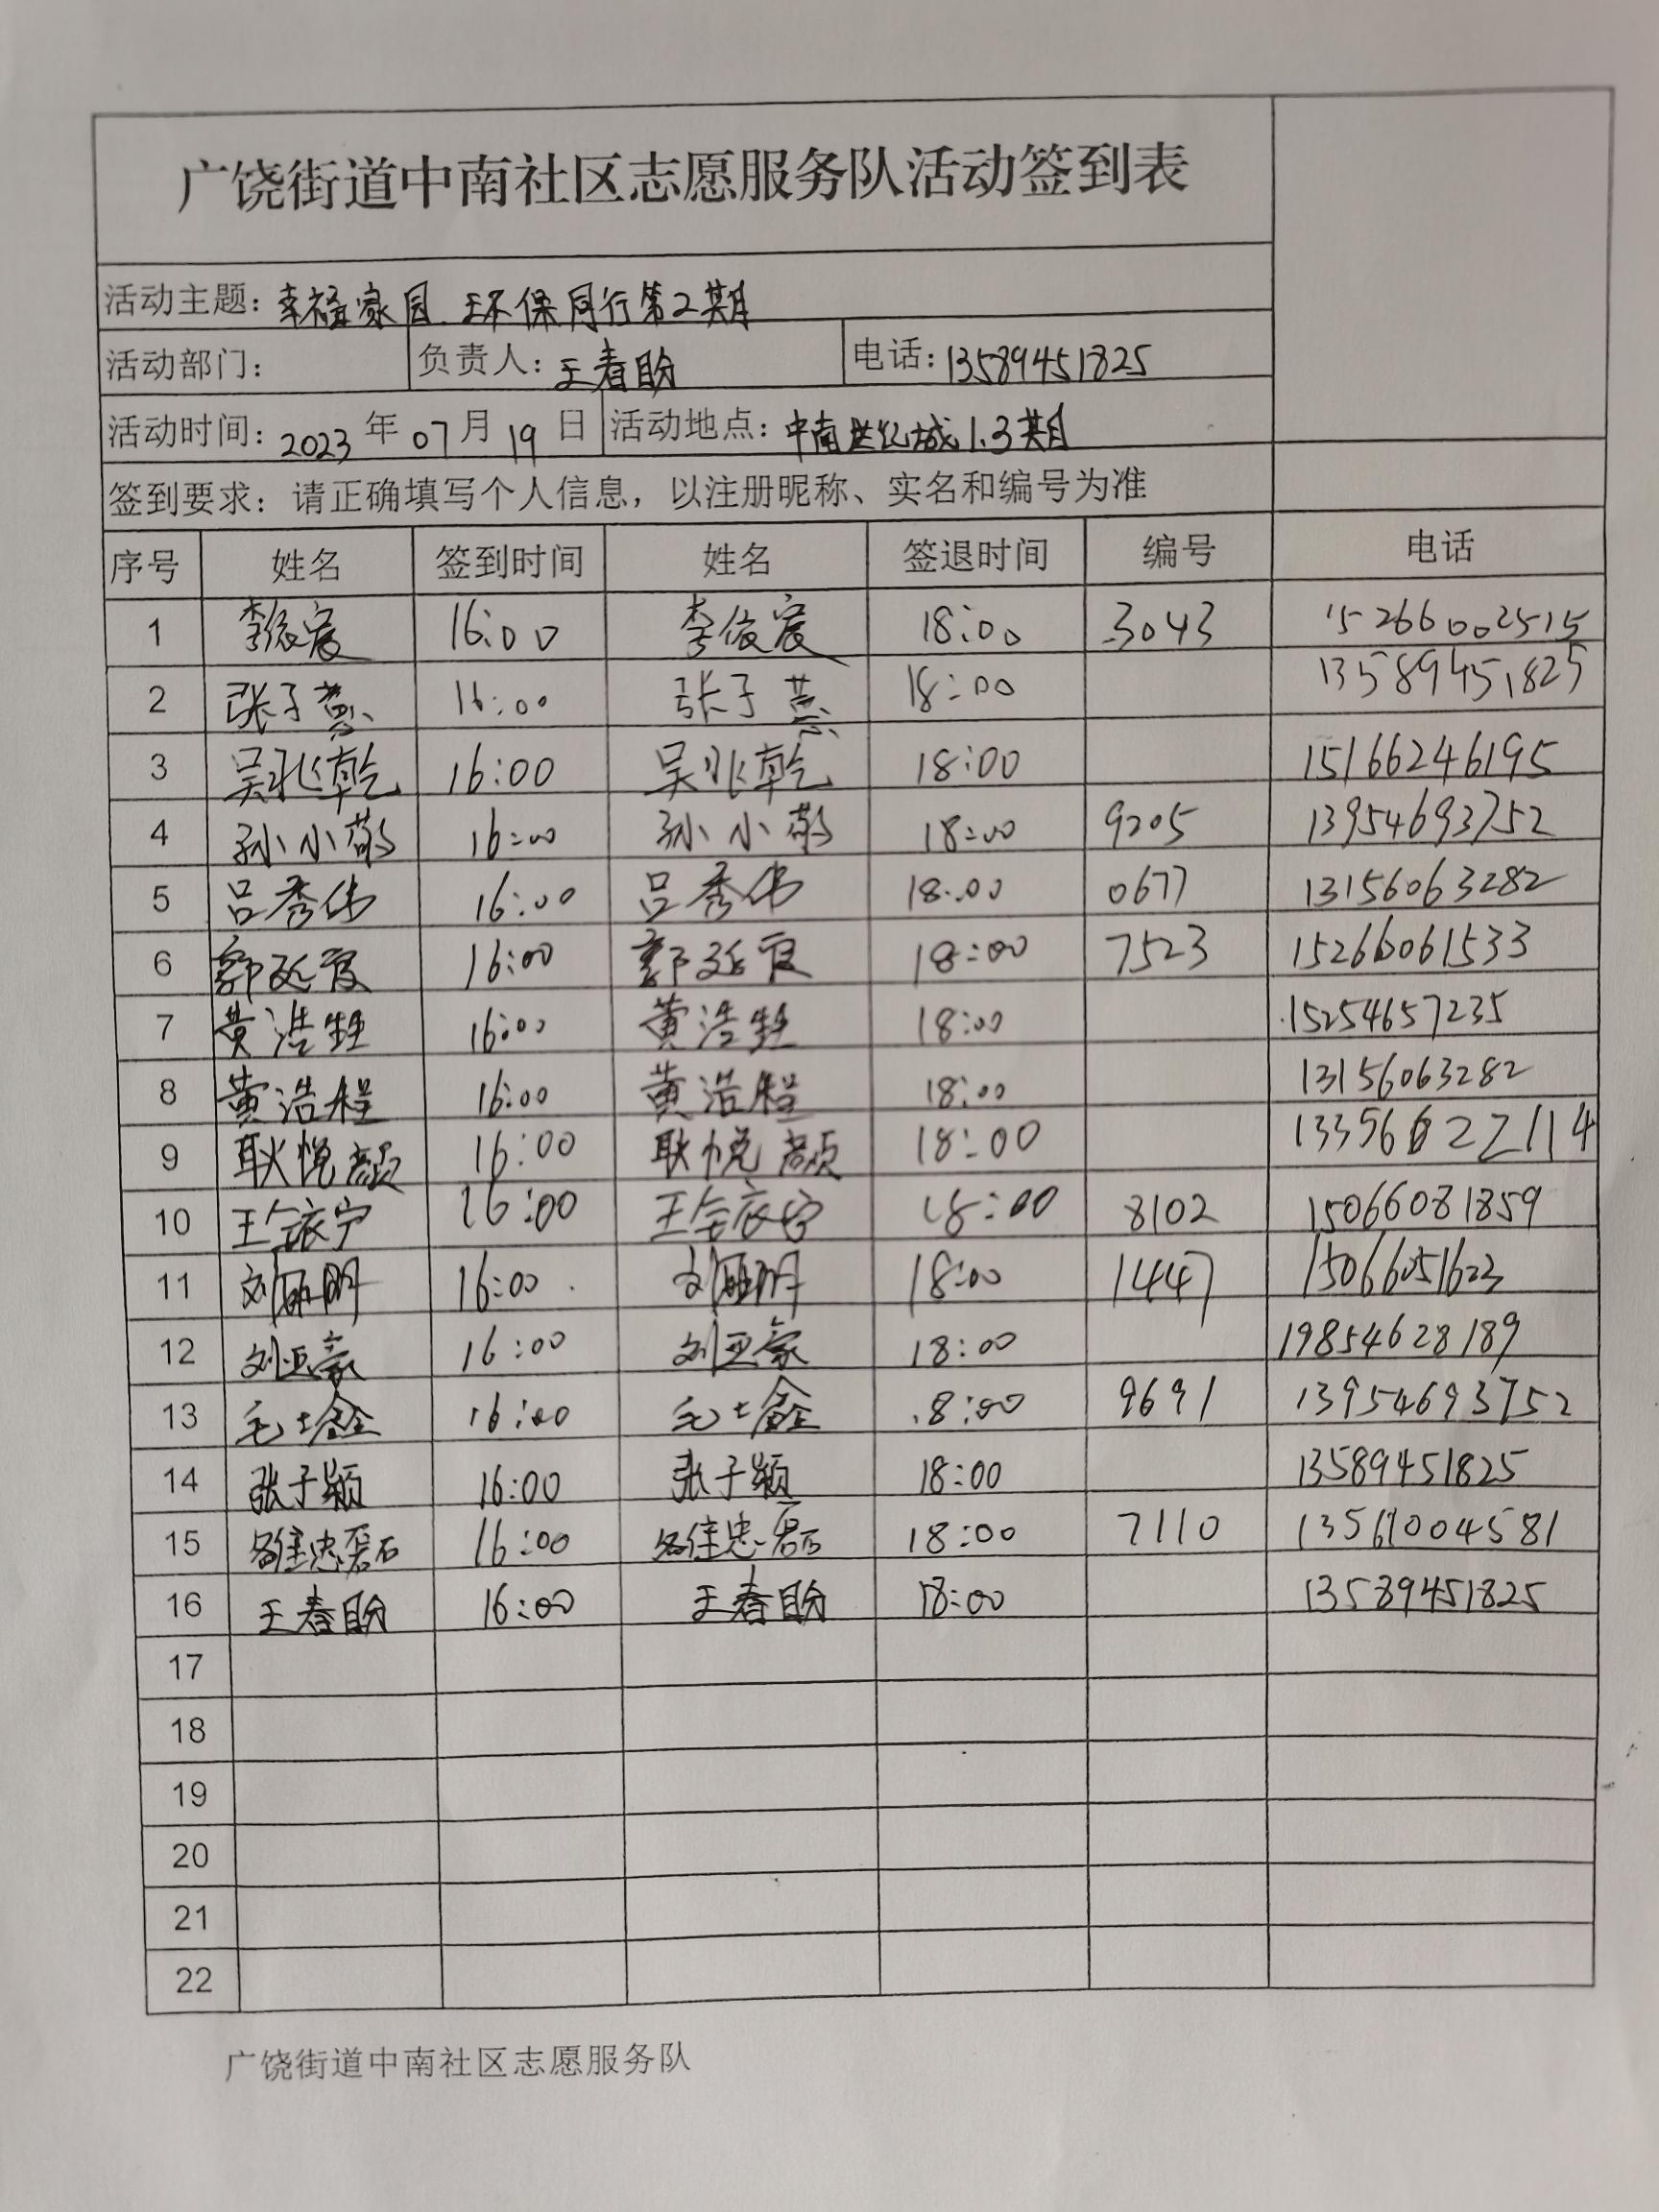 广饶街道中南社区志愿服务队活动签到表
活动主题：幸福家园.环保同行第2期
活动部门： 负责人：王春盼 电话：13589451825
活动时间：2023年07月19日 活动地点：中南世纪城1.3期
签到要求：请正确填写个人信息，以注册昵称、实名和编号为准
序号 姓名 签到时间 姓名 签退时间 编号 电话
1 李俊宸 16:00 李俊宸 18:00 3043 15266002515
2 张子慧 16:00 张子慧 18:00 13589451825
3 吴兆乾 16:00 吴兆乾 18:00 15166246195
4 孙小敬 16:00 孙小敬 18:00 9205 13954693752
5 吕秀伟 16:00 吕秀伟 18:00 0677 13156063282
6 郭延霞 16:00 郭延霞 18:00 7523 15266061533
7 黄浩 16:00 黄浩 18:00 15254657235
8 黄浩程 16:00 黄浩程 18:00 13156063282
9 耿悦颜 16:00 耿悦颜 18:00 13356622114
10 王金依宁 16:00 王金依宁 18:00 8102 15066081859
11 刘丽明 16:00 刘丽明 18:00 1447 15066051623
12 刘亚豪 16:00 刘亚豪 18:00 19854628189
13 毛士鑫 16:00 毛士鑫 18:00 9691 13954693752
14 张子颖 16:00 张子颖 18:00 13589451825
15 16:00 18:00 7110 13561004581
16 王春盼 16:00 王春盼 18:00 13589451825
17
18
19
20
21
22
广饶街道中南社区志愿服务队